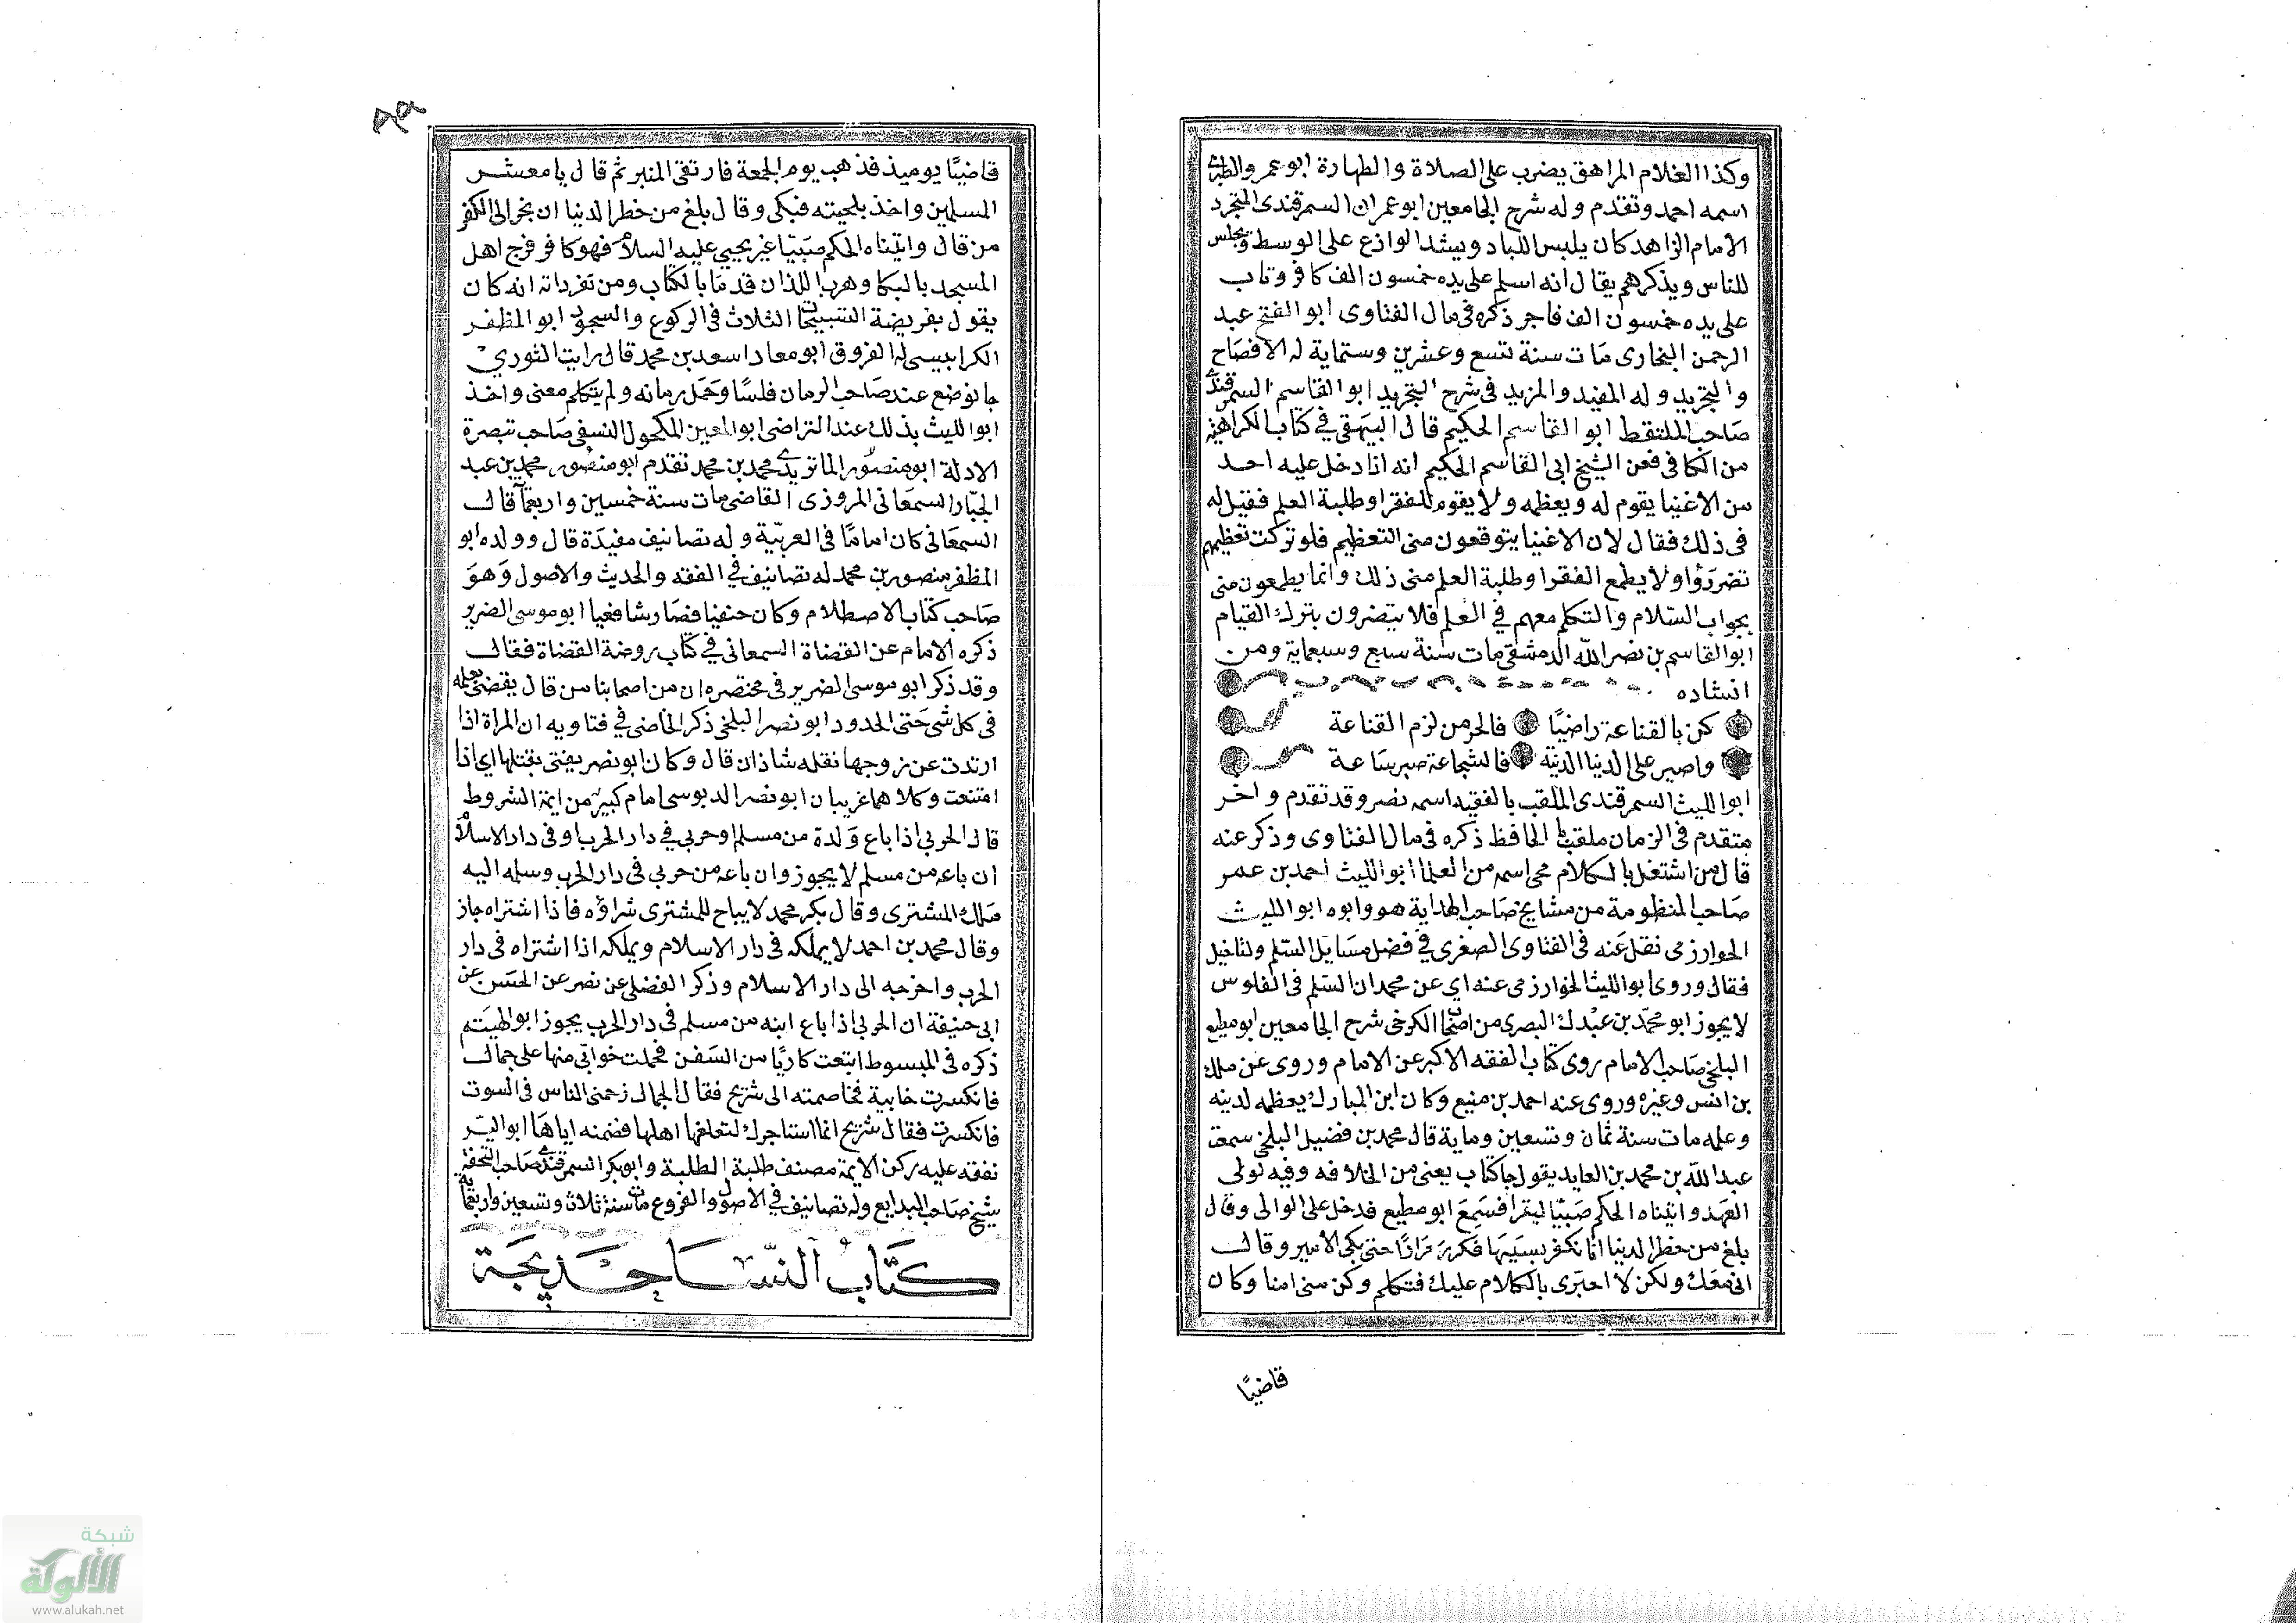 وكذا الغلام المراهق يضرب على الصلاة والطهارة ابو عمرو الطبرى
اسمه احمد وتقدم وله شرح الجامعين ابو عمران السمرقندى المتجرد
الامام الزاهد كان يلبس اللباد ويشد الوازع على الوسط ويجلس
للناس ويذكرهم يقال انه اسلم على يده خمسون الف كافر وتاب
على يده خمسون الف فاجر ذكره فى مال الفتاوى ابو الفتح عبد
الرحمن البخارى مات سنة تسع وعشرين وستماية له الافصاح
والتجريد وله المفيد والمزيد فى شرح التجريد ابو القاسم السمرقندى
صاحب الملتقط ابو القاسم الحكيم قال البيهقى في كتاب الكراهية
من الكافى فعن الشيخ ابى القاسم الحكيم انه اذا دخل عليه احد
من الاغنيا يقوم له ويعظمه ولا يقوم للفقرا وطلبة العلم فقيل له
فى ذلك فقال لان الاغنيا يتوقعون منى التعظيم فلو تركت تعظيمهم
تضرروا ولا يطمع الفقرا وطلبة العلم منى ذلك وانما يطمعون منى
بجواب السّلام والتكلم معهم في العلم فلا يتضرون بترك القيام
ابو القاسم بن نصر الله الدمشقى مات سنة سبع وسبعماية ومن
انشاده
كن بالقناعة راضيًا فالحر من لزم القناعة
واصبر على الدنيا الدنية فالشجاعة صبر ساعة
ابو الليث السمرقندى الملقب بالفقيه اسمه نصر وقد تقدم واخر
متقدم فى الزمان ملقب با الحافظ ذكره فى مال الفتاوى وذكر عنه
قال من اشتغل بالكلام محى اسمه من العلما ابو الليث احمد بن عمر
صاحب المنظومة من مشايخ صاحب الهداية هو وابوه ابو الليث
الخوارزمى نقل عنه فى الفتاوى الصغرى في فصل مسايل السّلم والتاجيل
فقال وروى ابو الليث الخوارزمى عنه اي عن محمد ان السّلم فى الفلوس
لا يجوز ابو محمّد بن عبدك البصرى من اصحاب الكرخى شرح الجامعين ابو مطيع
البلخى صاحب الامام روى كتاب الفقه الاكبر عن الامام وروى عن ملك
بن انس وغيره وروى عنه احمد بن منيع وكان ابن المبارك يعظمه لدينه
وعلمه مات سنة ثمان وتسعين وماية قال محمد بن فضيل البلخى سمعت
عبد الله بن محمد بن العابد يقول جا كتاب يعنى من الخلافه وفيه لولى
العهد واتيناه الحكم صبيّا ليقرا فسمع ابو مطيع فدخل على الوالى وقال
بلغ من خطر الدنيا انا نكفر بسببها فكرر مرارًا حتى بكى الامير وقال
انى معك ولكن لا اجترى بالكلام عليك فتكلم وكن منى امنا وكان
قاضيًا
قاضيًا يوميذ فذهب يوم الجمعة فارتقى المنبر ثم قال يا معشر
المسلمين واخذ بلحيته فبكى وقال بلغ من خطر الدنيا ان يجر الى الكفر
من قال واتيناه الحكم صبيّا غير يحيى عليه السلام فهو كافر فرج اهل
المسجد بالبكا وهرب اللذان قدما بالكتاب ومن تفرداته انه كان
يقول بفريضة التسبيحات الثلاث فى الركوع والسجود ابو المظفر
الكرابيسى له الفروق ابو معاد اسعد بن محمد قال رايت الثورى
جا نوضع عند صاحب الرمان فلسًا وحمل رمانه ولم يتكلم معنى واخذ
ابو الليث بذلك عند التراضى ابو المعين المكحول النسفى صاحب تبصرة
الادلة ابو منصور الماتريدى محمد بن محمد تقدم ابو منصور محمد بن عبد
الجبّار السمعانى المروزى القاضى مات سنة خمسين واربعما قال
السمعانى كان اماما فى العربيّة وله تصانيف مفيدة قال وولده ابو
المظفر منصور بن محمد له تصانيف في الفقه والحديث والاصول وهو
صاحب كتاب الاصطلام وكان حنفيا فصار شافعيا ابو موسى الضرير
ذكره الامام عن القضاة السمعانى في كتاب روضة القضاة فقال
وقد ذكر ابو موسى الضرير فى مختصره ان من اصحابنا من قال يقضى بعلمه
فى كل شى حتى الحدود ابو نصر البلخى ذكر الخاصى في فتاويه ان المراة اذا
ارتدت عن زوجها نقله شاذان قال وكان ابو نصر يفتى بقتلها اى اذا
امتنعت وكلاهما غريبان ابو نصر الدبوسى امام كبير من ايمة الشروط
قال الحربي اذا باع ولدة من مسلم او حربي في دار الحرب او فى دار الاسلام
ان باعه من مسلم لا يجوز وان باعه من حربي فى دار الحرب وسلمه اليه
ملك المشترى وقال بكر محمد لا يباح للمشترى شراؤه فاذا اشتراه جاز
وقال محمد بن احمد لا يملكه فى دار الاسلام ويملكه اذا اشتراه فى دار
الحرب واخرجه الى دار الاسلام وذكر الفضلى عن نصر عن الحسن عن
ابى حنيفة ان الحربى اذا باع ابنه من مسلم فى دار الحرب يجوز ابو الهيثم
ذكره فى المبسوط ابتعت كاريًا من السفن فحملت خوابي منها على جمال
فانكسرت خابية فخاصمته الى شريح فقال الجمال زحمنى الناس فى السوت
فانكسرت فقال شريح انما استاجرك لتعلغها اهلها فضمنه اياها ابو اليسر
تفقه عليه ركن الايمة مصنف طلبة الطلبة وابو بكر السمرقندى صاحب التحفة
شيخ صاحب البدايع وله تصانيف في الاصول والفروع مات سنة ثلاث وتسعين واربعماية
كتاب النسا خديجة
شبكة
الألوكة
www.alukah.net